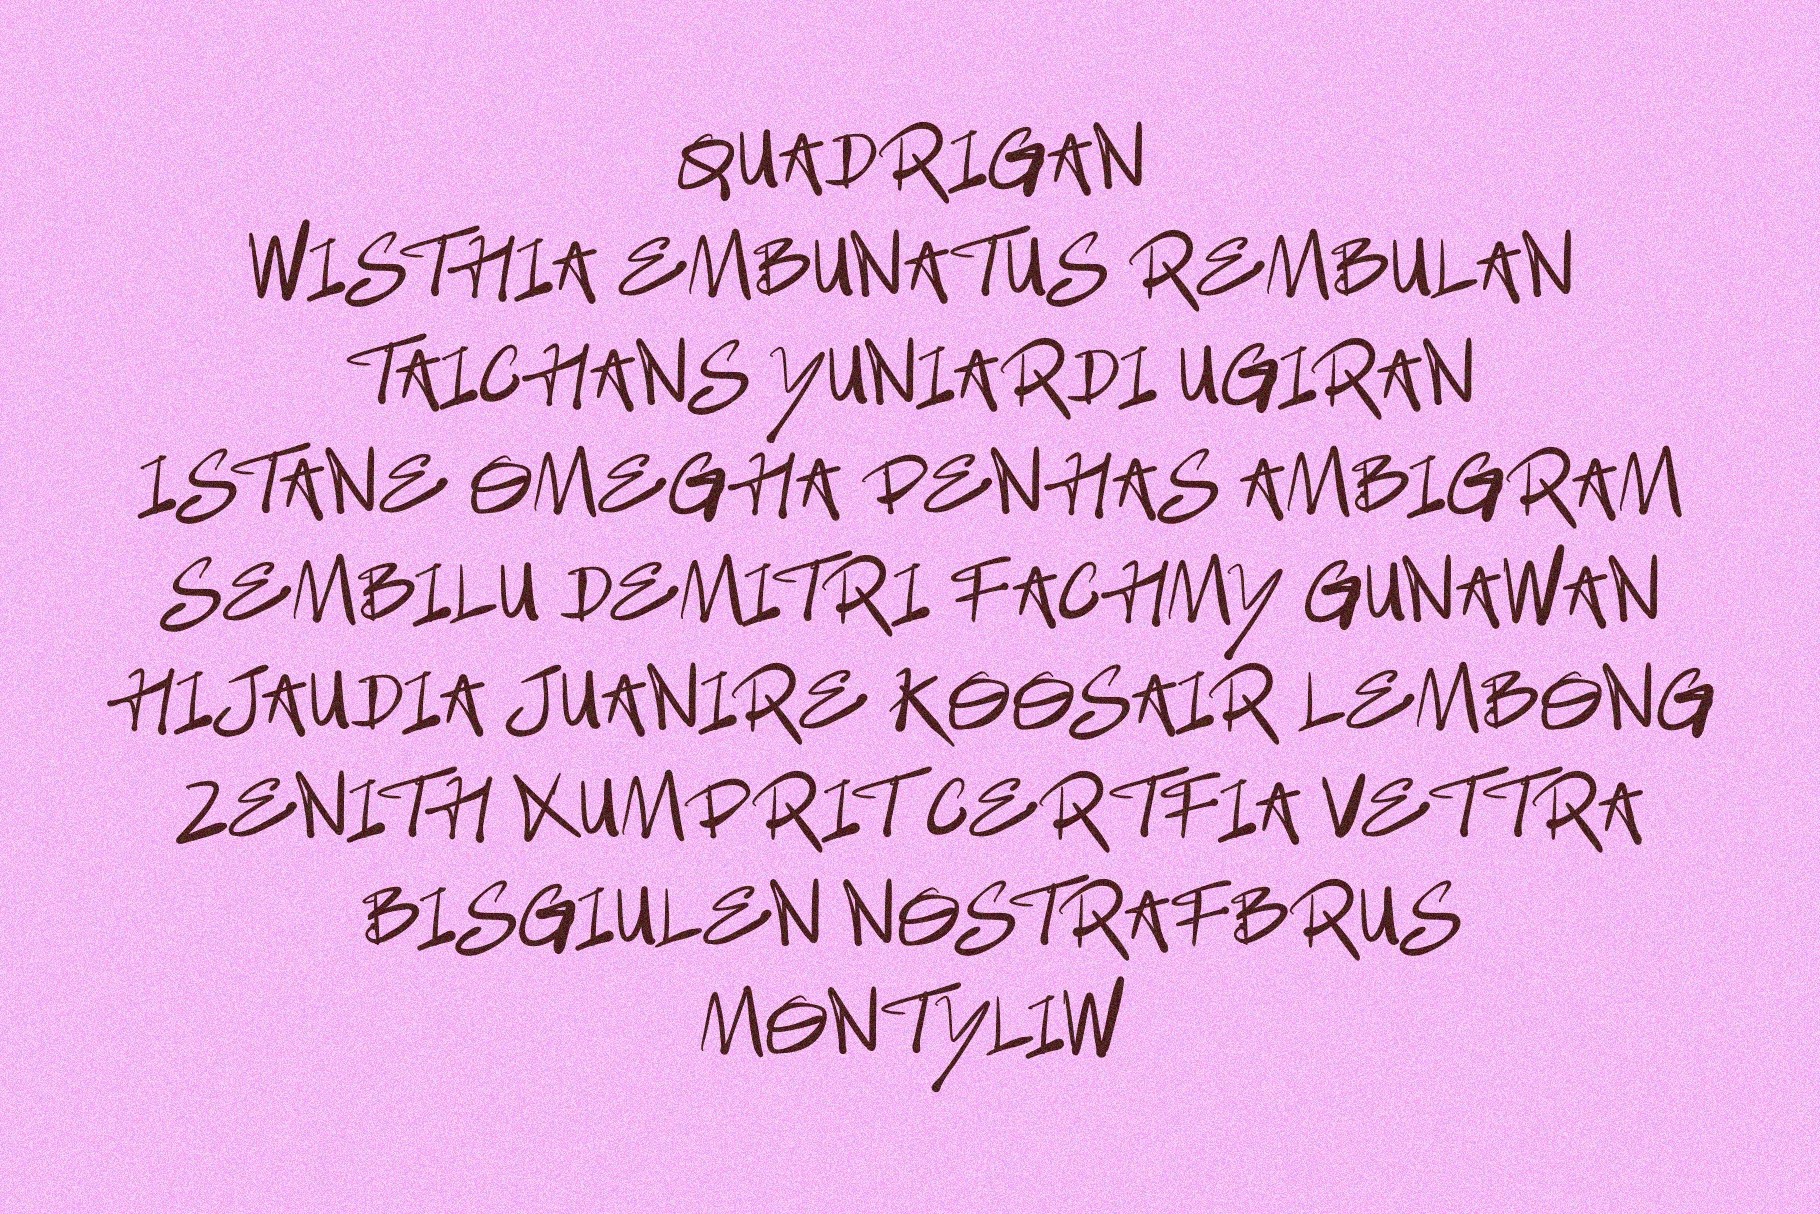 QUADRIGAN
WISTHIA EMBUNATUS REMBULAN
TAICHANS YUNIARDI UGIRAN
ISTANE OMEGHA PENHAS AMBIGRAM
SEMBILU DEMITRI FACHMY GUNAWAN
HIJAUDIA JUANIRE KOOSAIR LEMBONG
ZENITH XUMPRIT CERTFIA VETTRA
BISGIULEN NOSTRAFBRUS
MONTYLIW